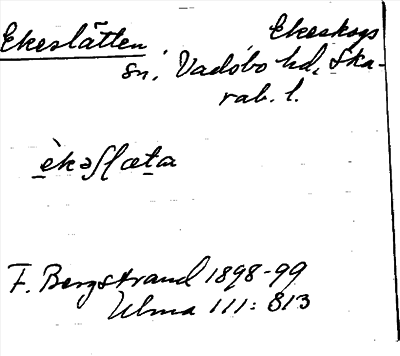 Ekeslätten Ekeskogs
sn, Vadsbo hd, Ska-
rab. l.
èkəslæta
F. Bergstrand 1898-99
Ulma 111: 813